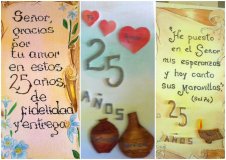 Señor,
gracias
por
tu amor
en estos
25 años,
de
fidelidad
y entrega
25
AÑOS
"He puesto
en el Señor
mis esperanzas
y hoy canto
sus Maravillas"
25
AÑOS